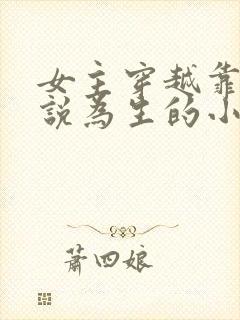 女主穿越靠
說為生的小
蕭四娘